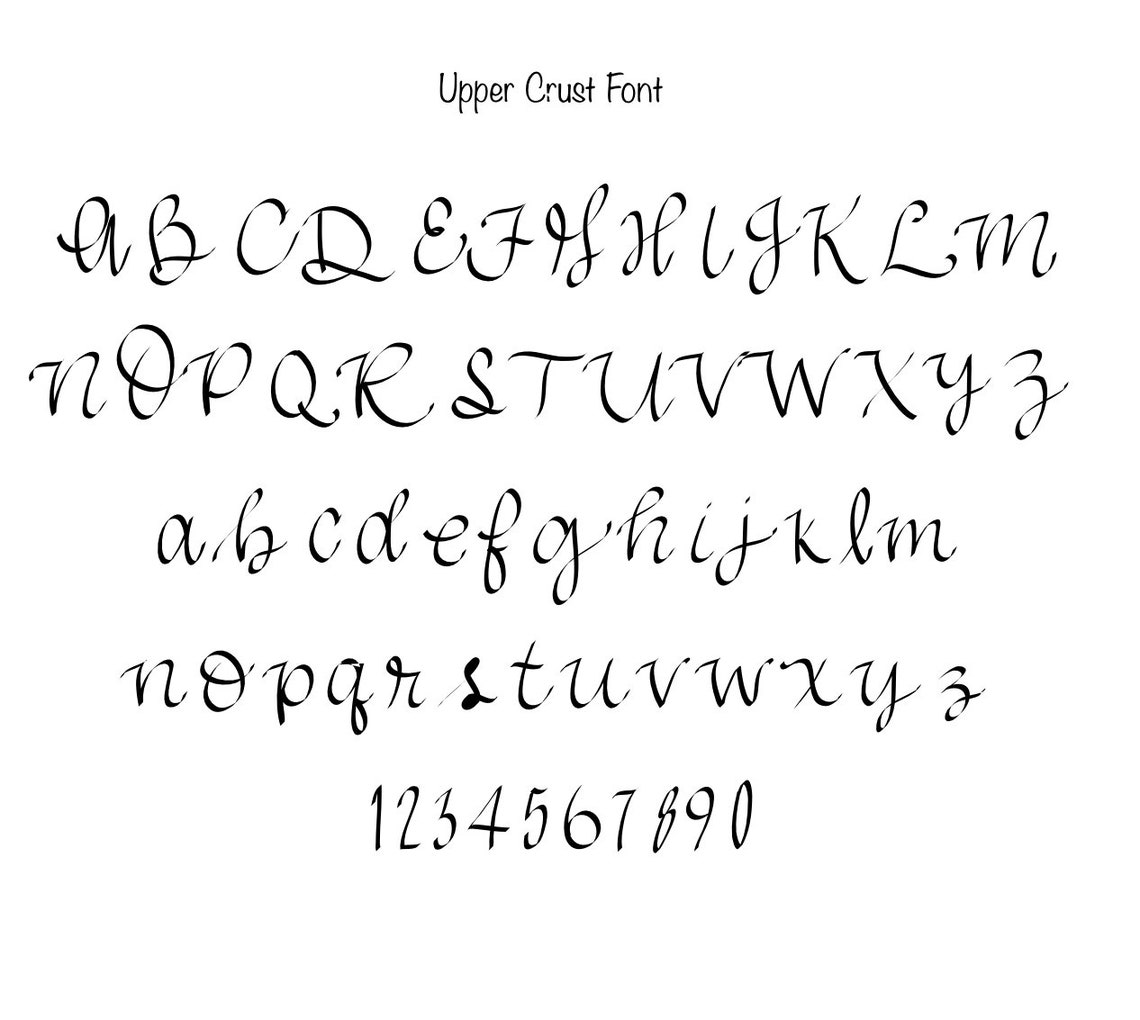 Upper Crust Font
A B C D E F G H I J K L M
N O P Q R S T U V W X Y Z
a b c d e f g h i j k l m
n o p q r s t u v w x y z
1 2 3 4 5 6 7 8 9 0